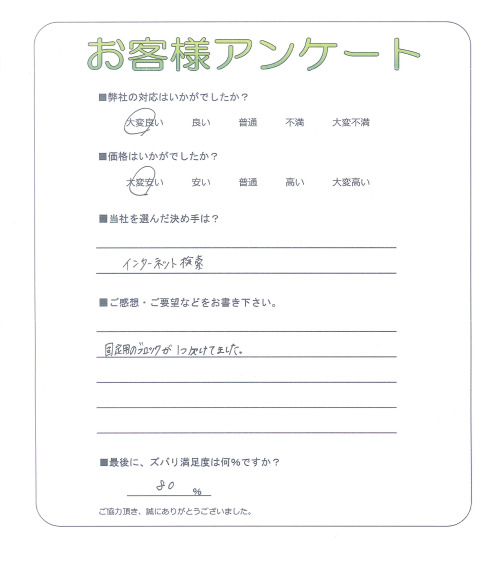 お客様アンケート
■弊社の対応はいかがでしたか？
大変良い 良い 普通 不満 大変不満
■価格はいかがでしたか？
大変安い 安い 普通 高い 大変高い
■当社を選んだ決め手は？
インターネット検索
■ご感想・ご要望などをお書き下さい。
固定用のブロックが1つ欠けてました。
■最後に、ズバリ満足度は何％ですか？
80 %
ご協力頂き、誠にありがとうございました。